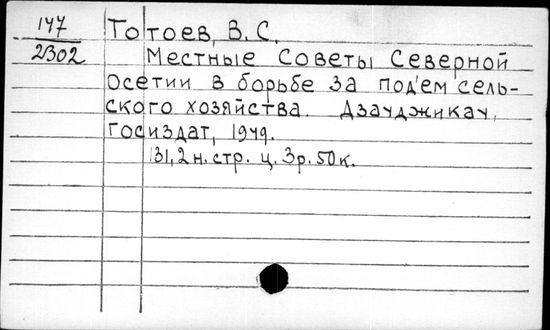 147
2302
Тотоев, В. С.
Местные Советы Северной
Осетии в борьбе за под'ем сель-
ского хозяйства. Дзауджикау,
Госиздат, 1949.
131, 2 н. стр. ц. 3 р. 50 к.